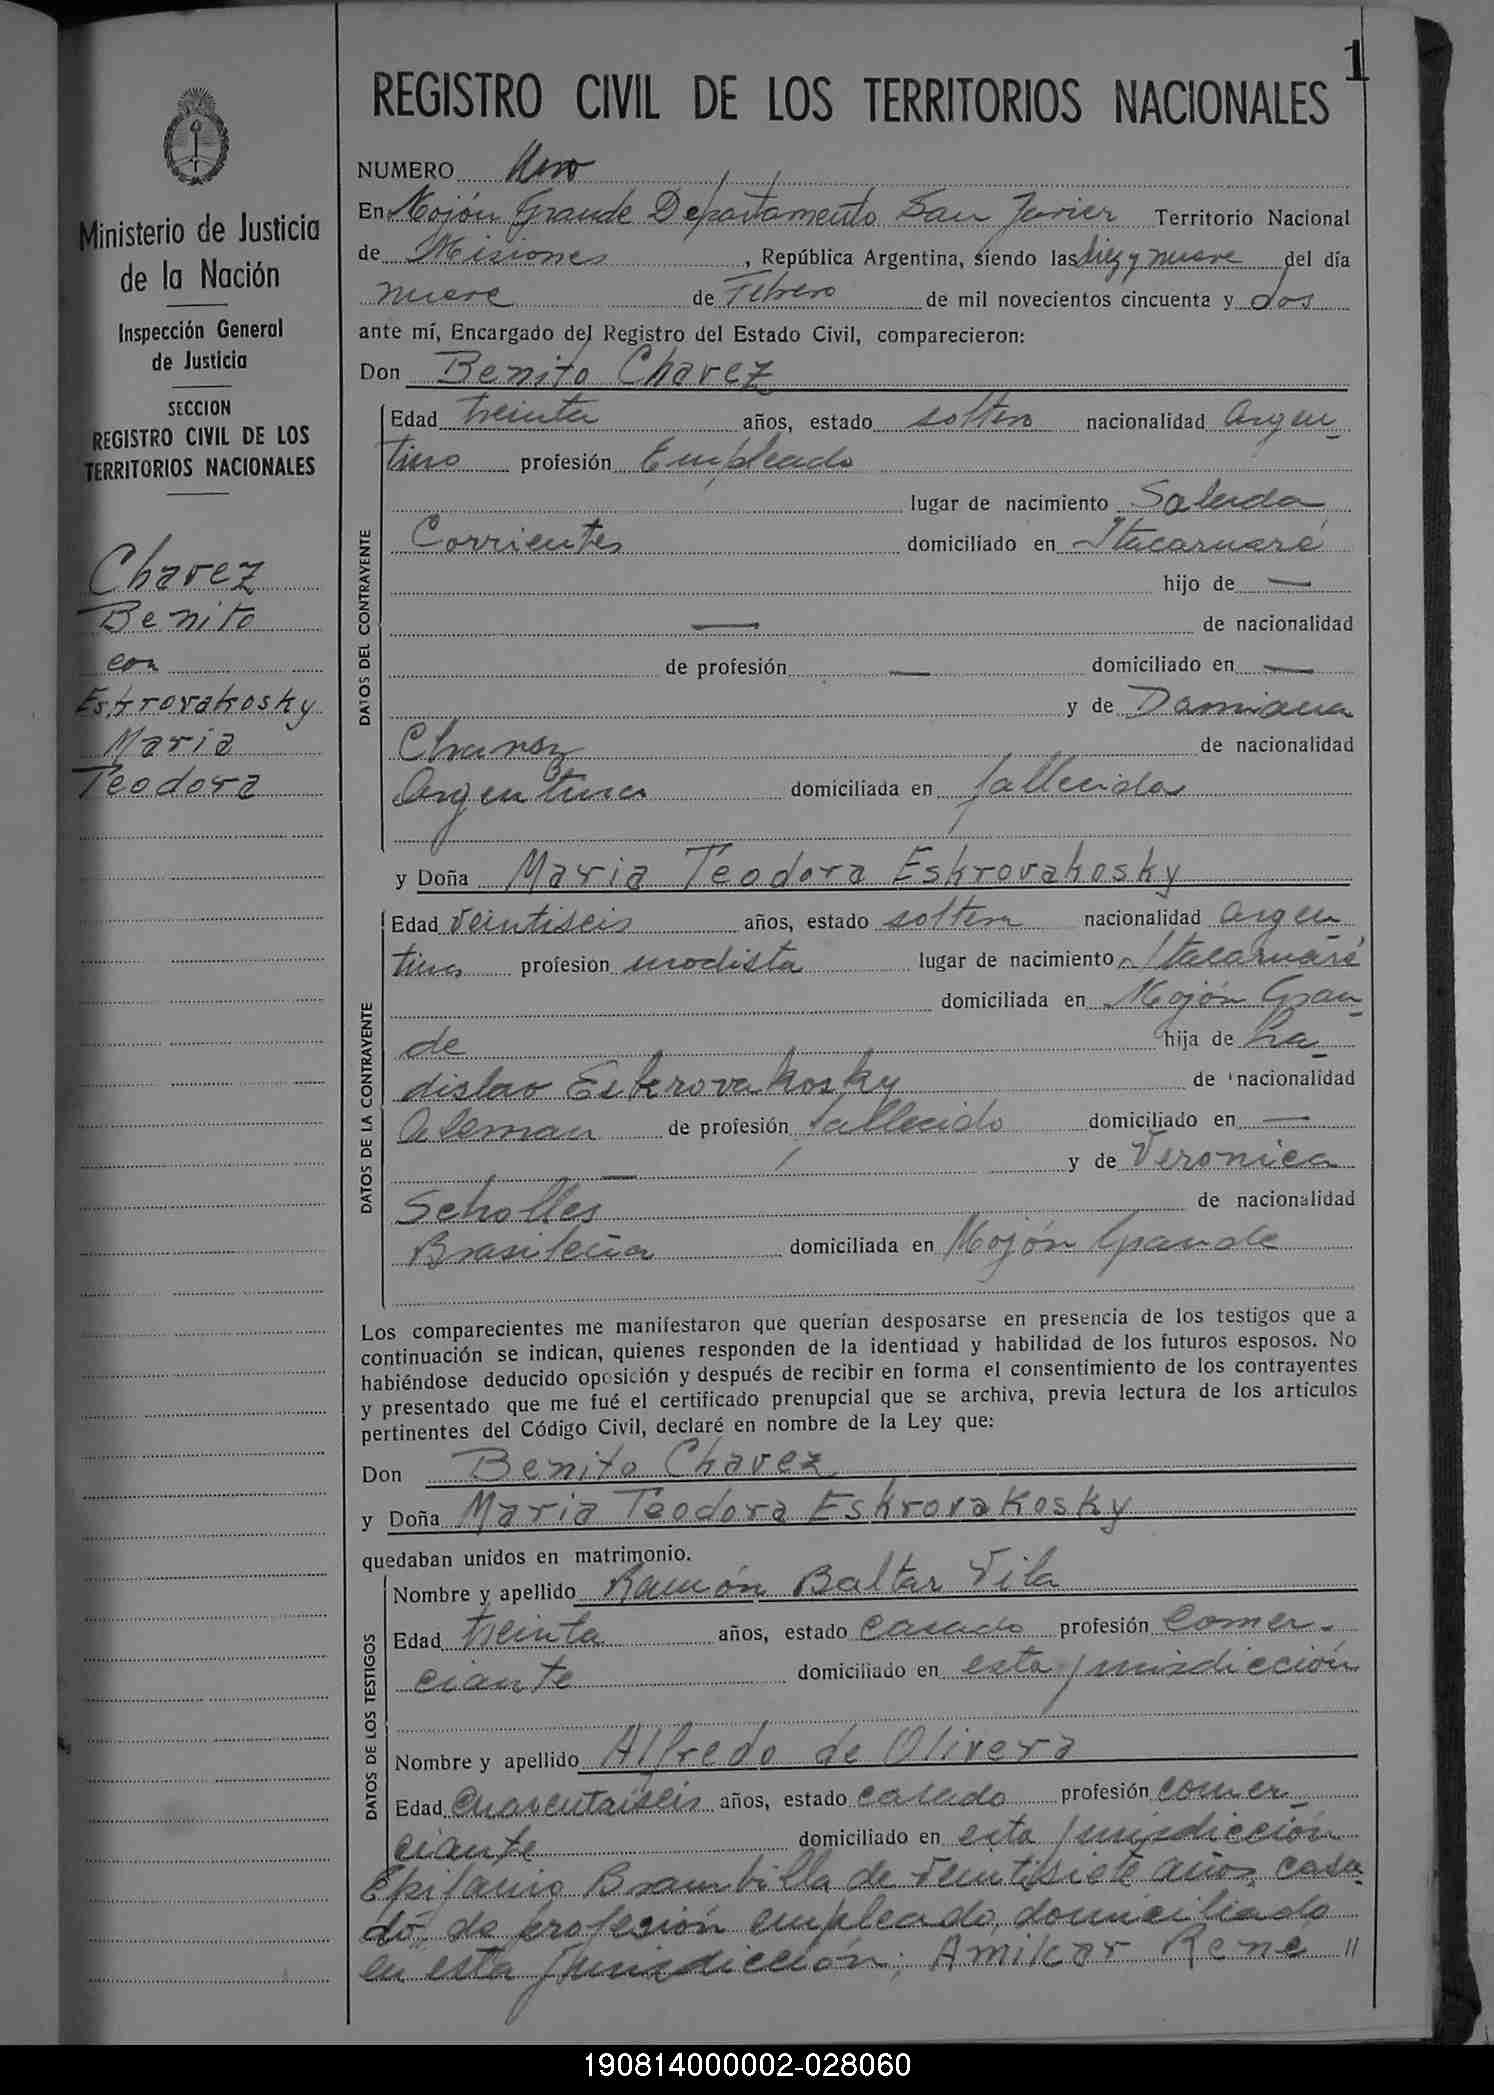 1
REGISTRO CIVIL DE LOS TERRITORIOS NACIONALES
Ministerio de Justicia
de la Nación
Inspección General
de Justicia
SECCION
REGISTRO CIVIL DE LOS
TERRITORIOS NACIONALES
Chavez
Benito
con
Eskrovakosky
Maria
Teodora
NUMERO Uno
En Mojón Grande Departamento San Javier Territorio Nacional
de Misiones, República Argentina, siendo las diez y nueve del día
nueve de Febrero de mil novecientos cincuenta y dos
ante mí, Encargado del Registro del Estado Civil, comparecieron:
Don Benito Chavez
DATOS DEL CONTRAYENTE
Edad treinta años, estado soltero nacionalidad Argen-
tino profesión Empleado
lugar de nacimiento Saladas
Corrientes domiciliado en Itacaruaré
hijo de —
— de nacionalidad
de profesión — domiciliado en —
y de Damiana
Chavez de nacionalidad
Argentina domiciliada en fallecida
y Doña Maria Teodora Eskrovakosky
DATOS DE LA CONTRAYENTE
Edad veintiseis años, estado soltera nacionalidad Argen
tina profesion modista lugar de nacimiento Itacaruaré
domiciliada en Mojón Gran-
de hija de La-
dislao Eskrovakosky de nacionalidad
Aleman de profesión fallecido domiciliado en —
— y de Veronica
Scholles de nacionalidad
Brasileña domiciliada en Mojón Grande
Los comparecientes me manifestaron que querían desposarse en presencia de los testigos que a
continuación se indican, quienes responden de la identidad y habilidad de los futuros esposos. No
habiéndose deducido oposición y después de recibir en forma el consentimiento de los contrayentes
y presentado que me fué el certificado prenupcial que se archiva, previa lectura de los artículos
pertinentes del Código Civil, declaré en nombre de la Ley que:
Don Benito Chavez
y Doña Maria Teodora Eskrovakosky
quedaban unidos en matrimonio.
DATOS DE LOS TESTIGOS
Nombre y apellido Ramón Baltar Vila
Edad treinta años, estado casado profesión comer-
ciante domiciliado en esta jurisdicción
Nombre y apellido Alfredo de Olivera
Edad cuarentaiseis años, estado casado profesión comer-
ciante domiciliado en esta jurisdicción
Epifanio Brambilla de veintisiete años, casa-
do, de profesión empleado, domiciliado
en esta jurisdicción; Amilcar Rene //
190814000002-028060